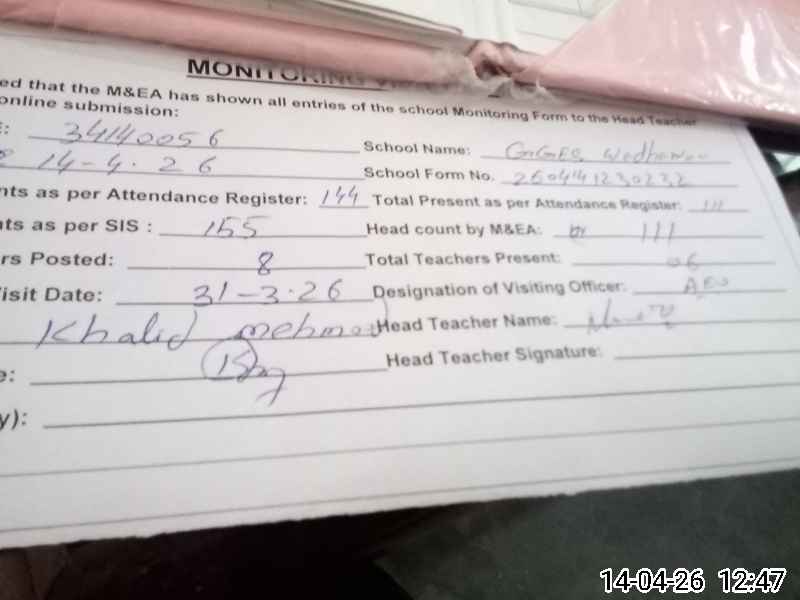 MONITORING
ed that the M&EA has shown all entries of the school Monitoring Form to the Head Teacher
online submission:
E: 34140056 School Name: GGES
14-4-26 School Form No.
nts as per Attendance Register: 144 Total Present as per Attendance Register: 111
nts as per SIS : 155 Head count by M&EA: 111
rs Posted: 8 Total Teachers Present: 06
isit Date: 31-3-26 Designation of Visiting Officer: AEO
Khalid mehmood Head Teacher Name:
e: Head Teacher Signature:
y):
14-04-26 12:47